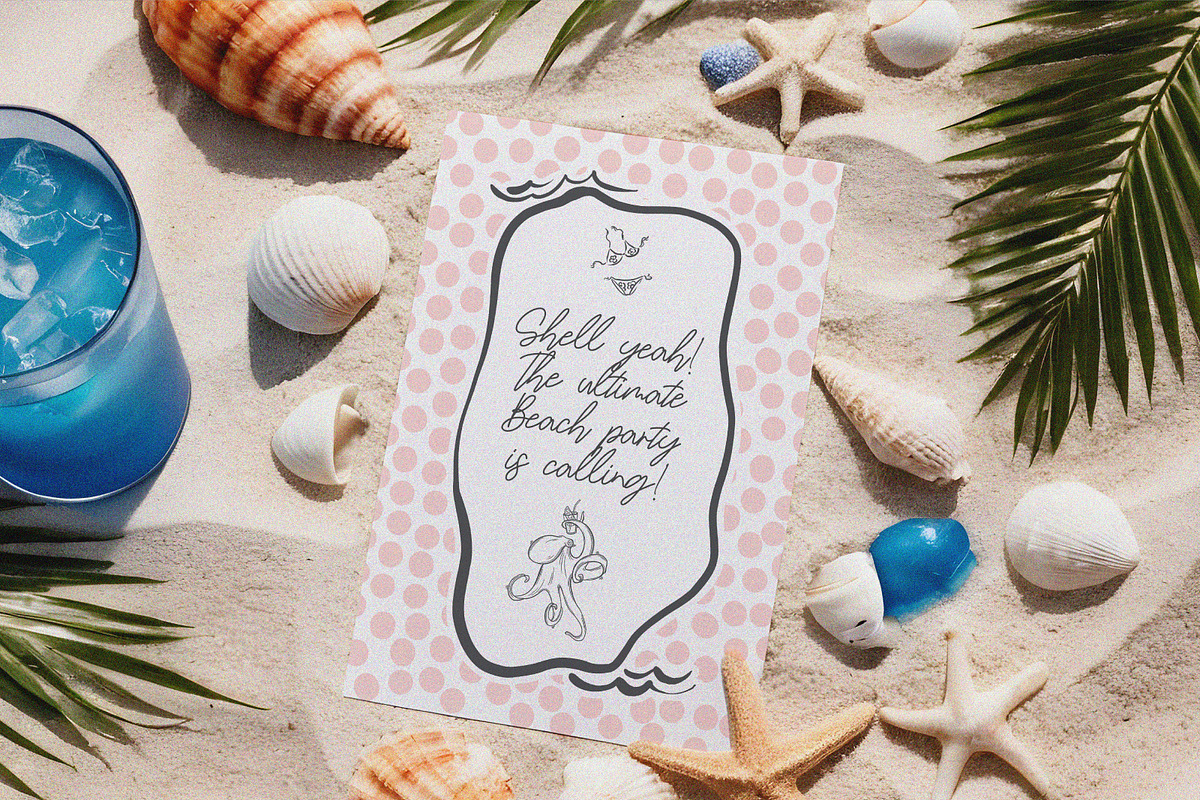 Shell yeah!
The ultimate
Beach party
is calling!